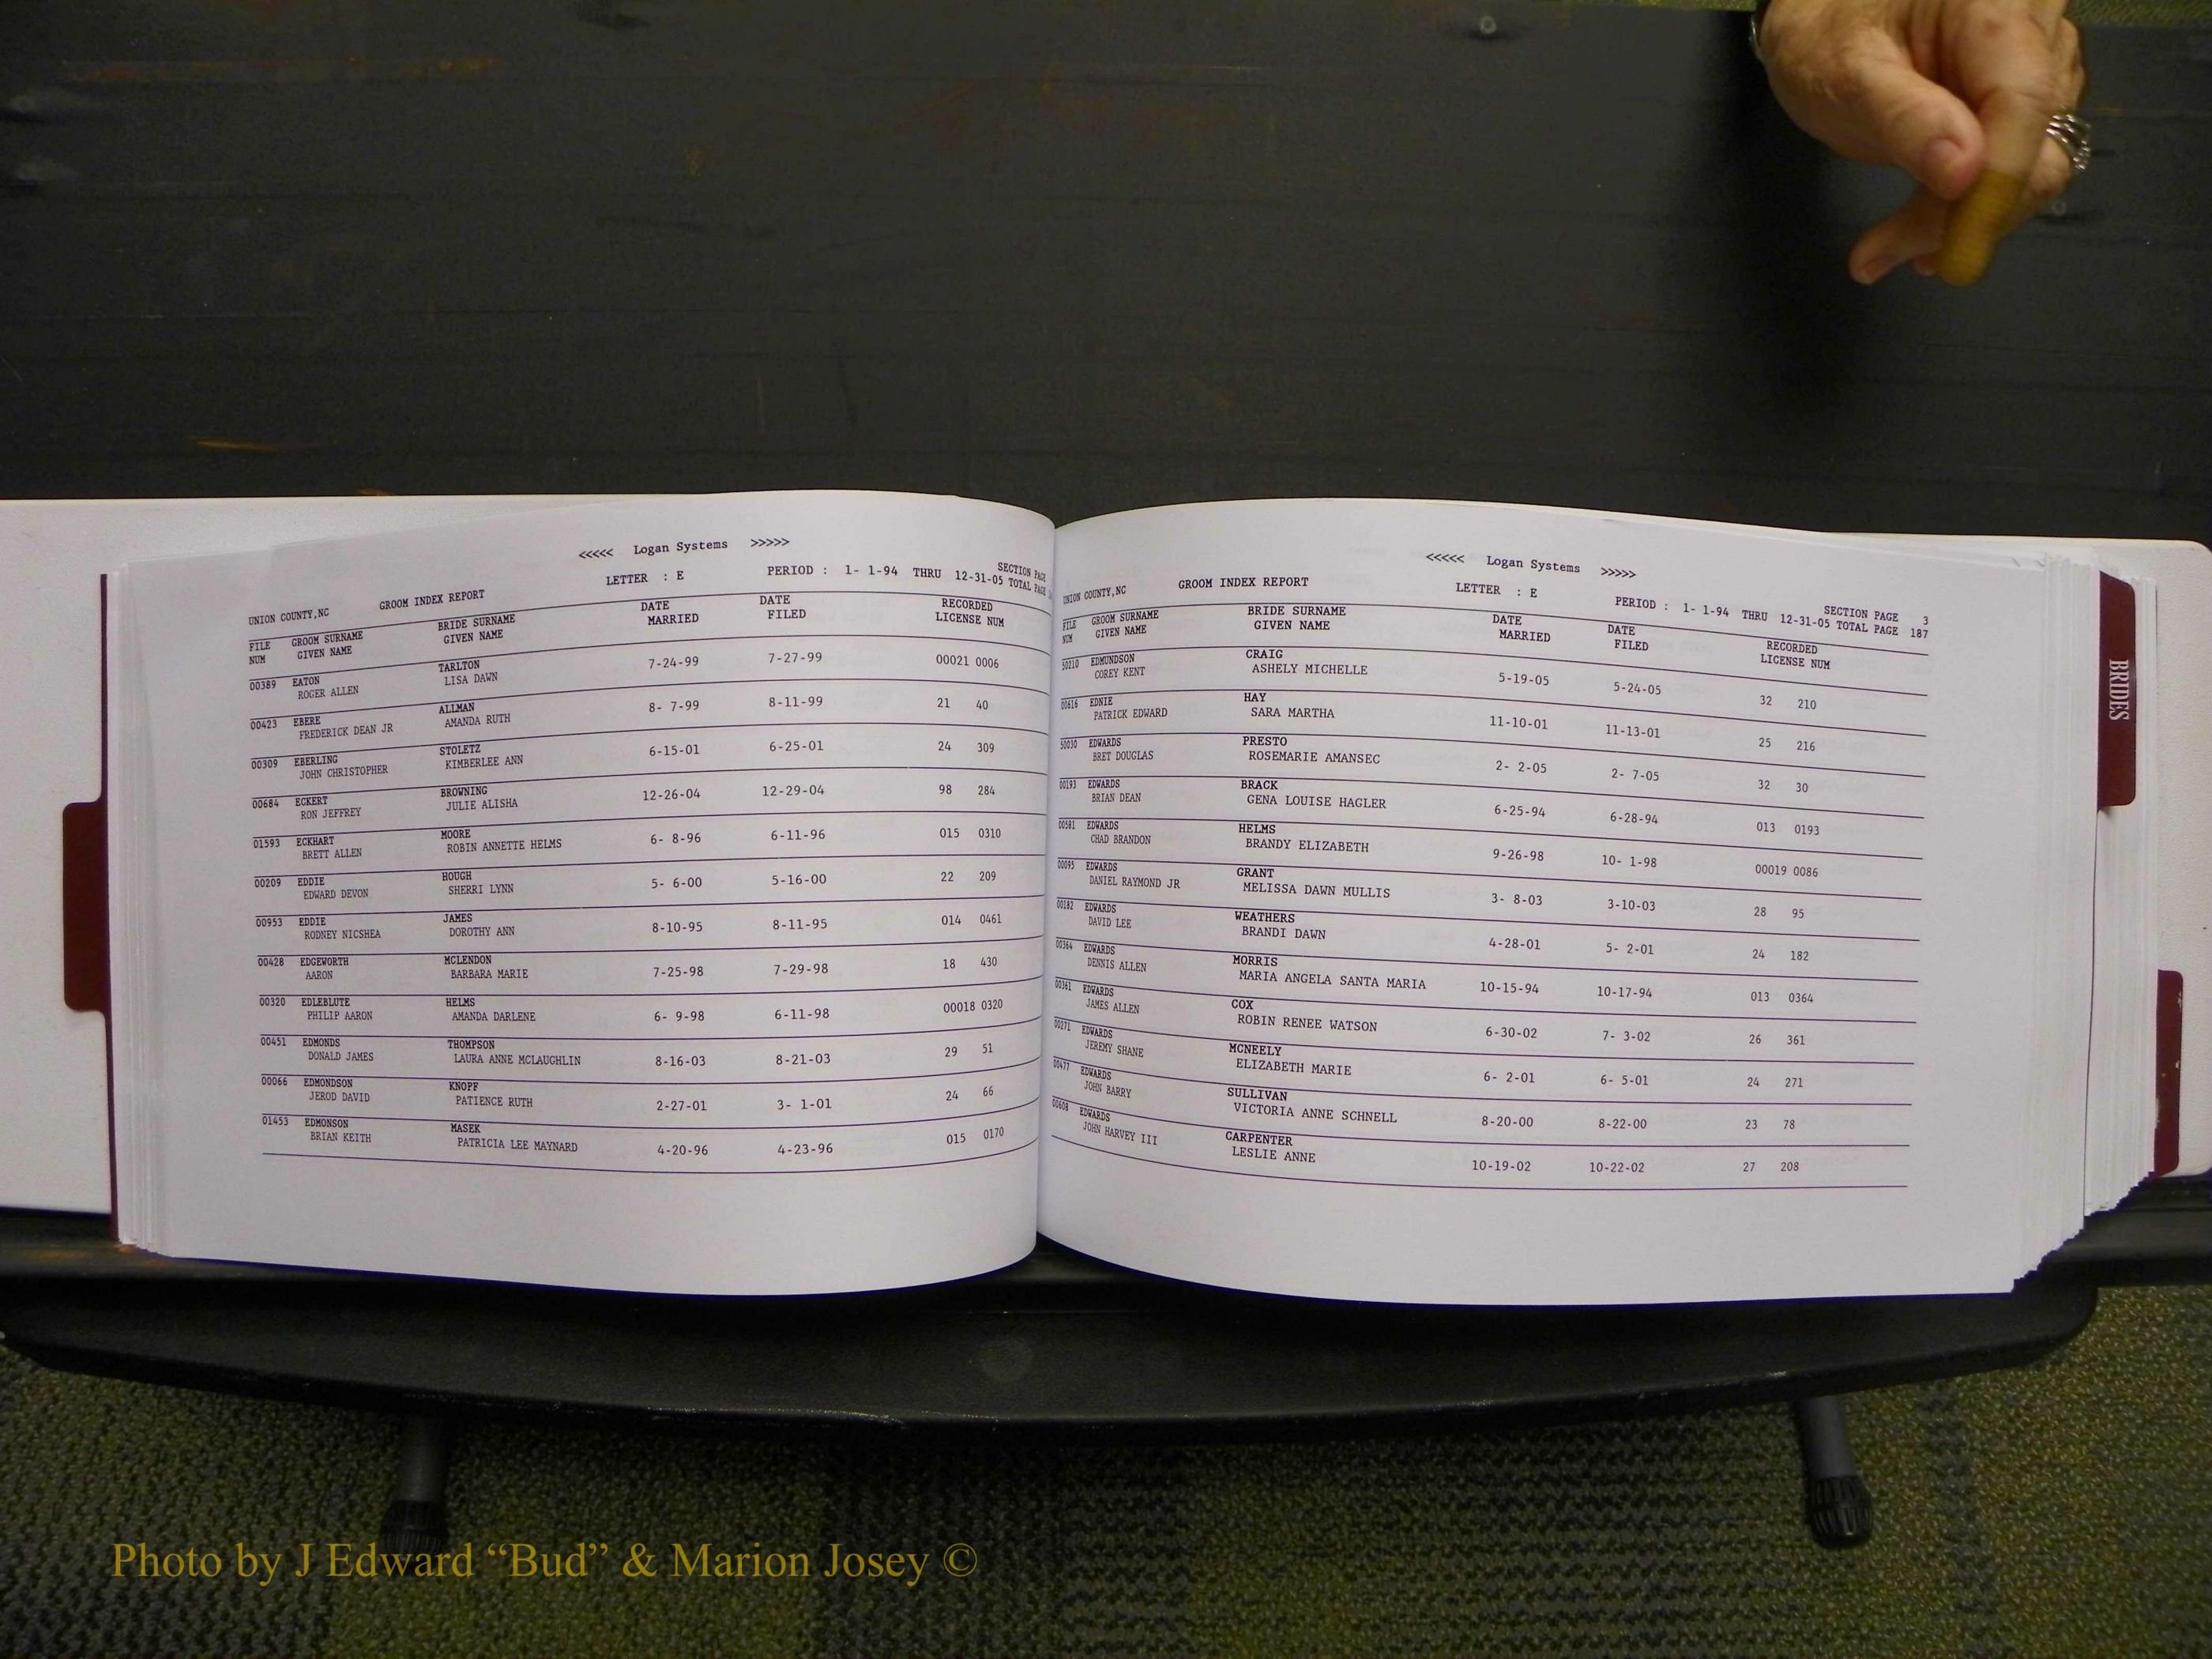 <<<<< Logan Systems >>>>>
UNION COUNTY,NC GROOM INDEX REPORT LETTER : E PERIOD : 1- 1-94 THRU 12-31-05 SECTION PAGE
TOTAL PAGE
FILE GROOM SURNAME BRIDE SURNAME DATE DATE RECORDED
NUM GIVEN NAME GIVEN NAME MARRIED FILED LICENSE NUM
00389 EATON TARLTON 7-24-99 7-27-99 00021 0006
ROGER ALLEN LISA DAWN
00423 EBERE ALLMAN 8- 7-99 8-11-99 21 40
FREDERICK DEAN JR AMANDA RUTH
00309 EBERLING STOLETZ 6-15-01 6-25-01 24 309
JOHN CHRISTOPHER KIMBERLEE ANN
00684 ECKERT BROWNING 12-26-04 12-29-04 98 284
RON JEFFREY JULIE ALISHA
01593 ECKHART MOORE 6- 8-96 6-11-96 015 0310
BRETT ALLEN ROBIN ANNETTE HELMS
00209 EDDIE HOUGH 5- 6-00 5-16-00 22 209
EDWARD DEVON SHERRI LYNN
00953 EDDIE JAMES 8-10-95 8-11-95 014 0461
RODNEY NICSHEA DOROTHY ANN
00428 EDGEWORTH MCLENDON 7-25-98 7-29-98 18 430
AARON BARBARA MARIE
00320 EDLEBLUTE HELMS 6- 9-98 6-11-98 00018 0320
PHILIP AARON AMANDA DARLENE
00451 EDMONDS THOMPSON 8-16-03 8-21-03 29 51
DONALD JAMES LAURA ANNE MCLAUGHLIN
00066 EDMONDSON KNOPF 2-27-01 3- 1-01 24 66
JEROD DAVID PATIENCE RUTH
01453 EDMONSON MASEK 4-20-96 4-23-96 015 0170
BRIAN KEITH PATRICIA LEE MAYNARD
<<<<< Logan Systems >>>>>
UNION COUNTY,NC GROOM INDEX REPORT LETTER : E PERIOD : 1- 1-94 THRU 12-31-05 SECTION PAGE 3
TOTAL PAGE 187
FILE GROOM SURNAME BRIDE SURNAME DATE DATE RECORDED
NUM GIVEN NAME GIVEN NAME MARRIED FILED LICENSE NUM
50210 EDMUNDSON CRAIG 5-19-05 5-24-05 32 210
COREY KENT ASHELY MICHELLE
00616 EDNIE HAY 11-10-01 11-13-01 25 216
PATRICK EDWARD SARA MARTHA
50030 EDWARDS PRESTO 2- 2-05 2- 7-05 32 30
BRET DOUGLAS ROSEMARIE AMANSEC
00193 EDWARDS BRACK 6-25-94 6-28-94 013 0193
BRIAN DEAN GENA LOUISE HAGLER
00581 EDWARDS HELMS 9-26-98 10- 1-98 00019 0086
CHAD BRANDON BRANDY ELIZABETH
00095 EDWARDS GRANT 3- 8-03 3-10-03 28 95
DANIEL RAYMOND JR MELISSA DAWN MULLIS
00182 EDWARDS WEATHERS 4-28-01 5- 2-01 24 182
DAVID LEE BRANDI DAWN
00364 EDWARDS MORRIS 10-15-94 10-17-94 013 0364
DENNIS ALLEN MARIA ANGELA SANTA MARIA
00361 EDWARDS COX 6-30-02 7- 3-02 26 361
JAMES ALLEN ROBIN RENEE WATSON
00271 EDWARDS MCNEELY 6- 2-01 6- 5-01 24 271
JEREMY SHANE ELIZABETH MARIE
00477 EDWARDS SULLIVAN 8-20-00 8-22-00 23 78
JOHN BARRY VICTORIA ANNE SCHNELL
00608 EDWARDS CARPENTER 10-19-02 10-22-02 27 208
JOHN HARVEY III LESLIE ANNE
BRIDES
Photo by J Edward “Bud” & Marion Josey ©